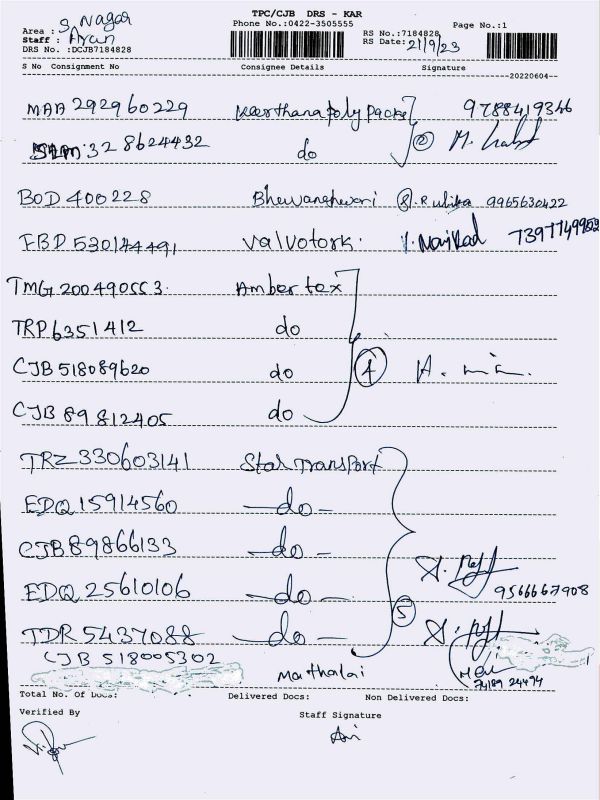 TPC/CJB DRS - KAR
Area : S. Nagar Phone No.:0422-3505555 RS No.:7184828 Page No.:1
Staff : Ayan RS Date: 21/9/23
DRS No. :DCJB7184828
S No Consignment No Consignee Details Signature
20220604
MAA 292960229 Keerthana poly packs 9788419346
328624432 do ②
BOD 400228 Bhuvaneshwari R. 9965630422
FBD 530144491 Valvotork. 7397749952
TMG 200490553. Amber tex
TRP 6351412 do
CJB 518089620 do ④
CJB 89812405 do
TRZ 330603141 Star Transport
EDQ 15914560 -do-
CJB 89866133 -do-
EDQ 25610106 -do- 9566667908
TDR 5437088 -do- ⑤
CJB 518005302 Mathalai 74189 24494
Total No. Of Docs: Delivered Docs: Non Delivered Docs:
Verified By Staff Signature